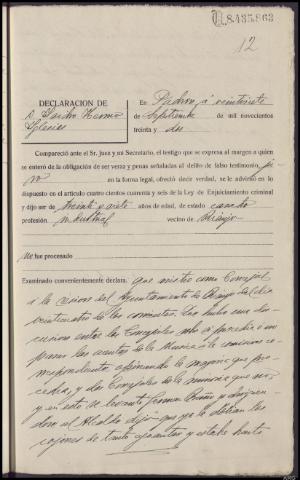 8.435.863
12
DECLARACION DE
D. Isidro Hermo
Iglesias
En Padrón, á veintisiete
de Septiembre de mil novecientos
treinta y dos
Compareció ante el Sr. Juez y mi Secretario, el testigo que se expresa al margen a quien
se enteró de la obligación de ser veraz y penas señaladas al delito de falso testimonio,
en la forma legal, ofreció decir verdad, se le advirtió en lo
dispuesto en el artículo cuatro cientos cuarenta y seis de la Ley de Enjuiciamiento criminal
y dijo ser de treinta y siete años de edad, de estado casado
profesión industrial vecino de Rianjo
No fue procesado
Examinado convenientemente declara: que asistió como Concejal
a la sesion del Ayuntamiento de Rianjo del dia
veinticuatro de los corrientes. Que hubo una dis-
cusion entre los Concejales sobre si procedia o no
pasar las cuentas de la Musica a la comision co-
rrespondiente, afirmando la mayoria que pro-
cedia, y dos Concejales de la minoria que no,
y en esto se levantó y dirigien-
dose al Alcalde dijo que no le debian los
cojones de tanto y estaba harto